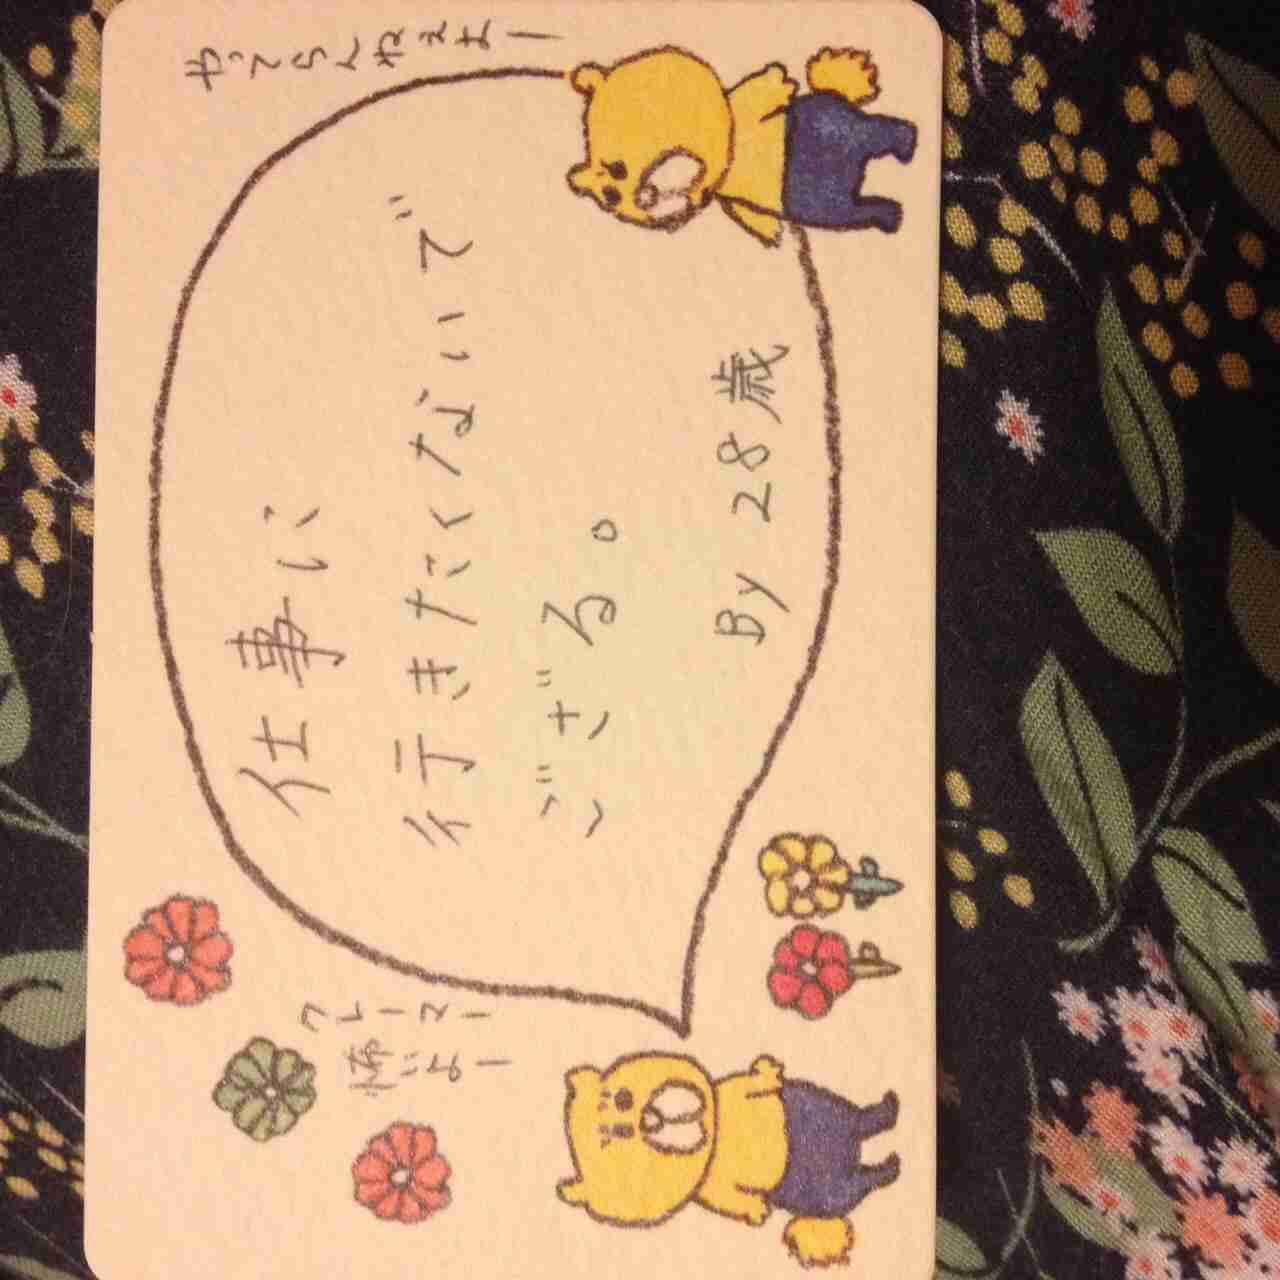 クレーマー
怖いよー
仕事に
行きたくないで
ござる。
By 28歳
やってらんねぇよー